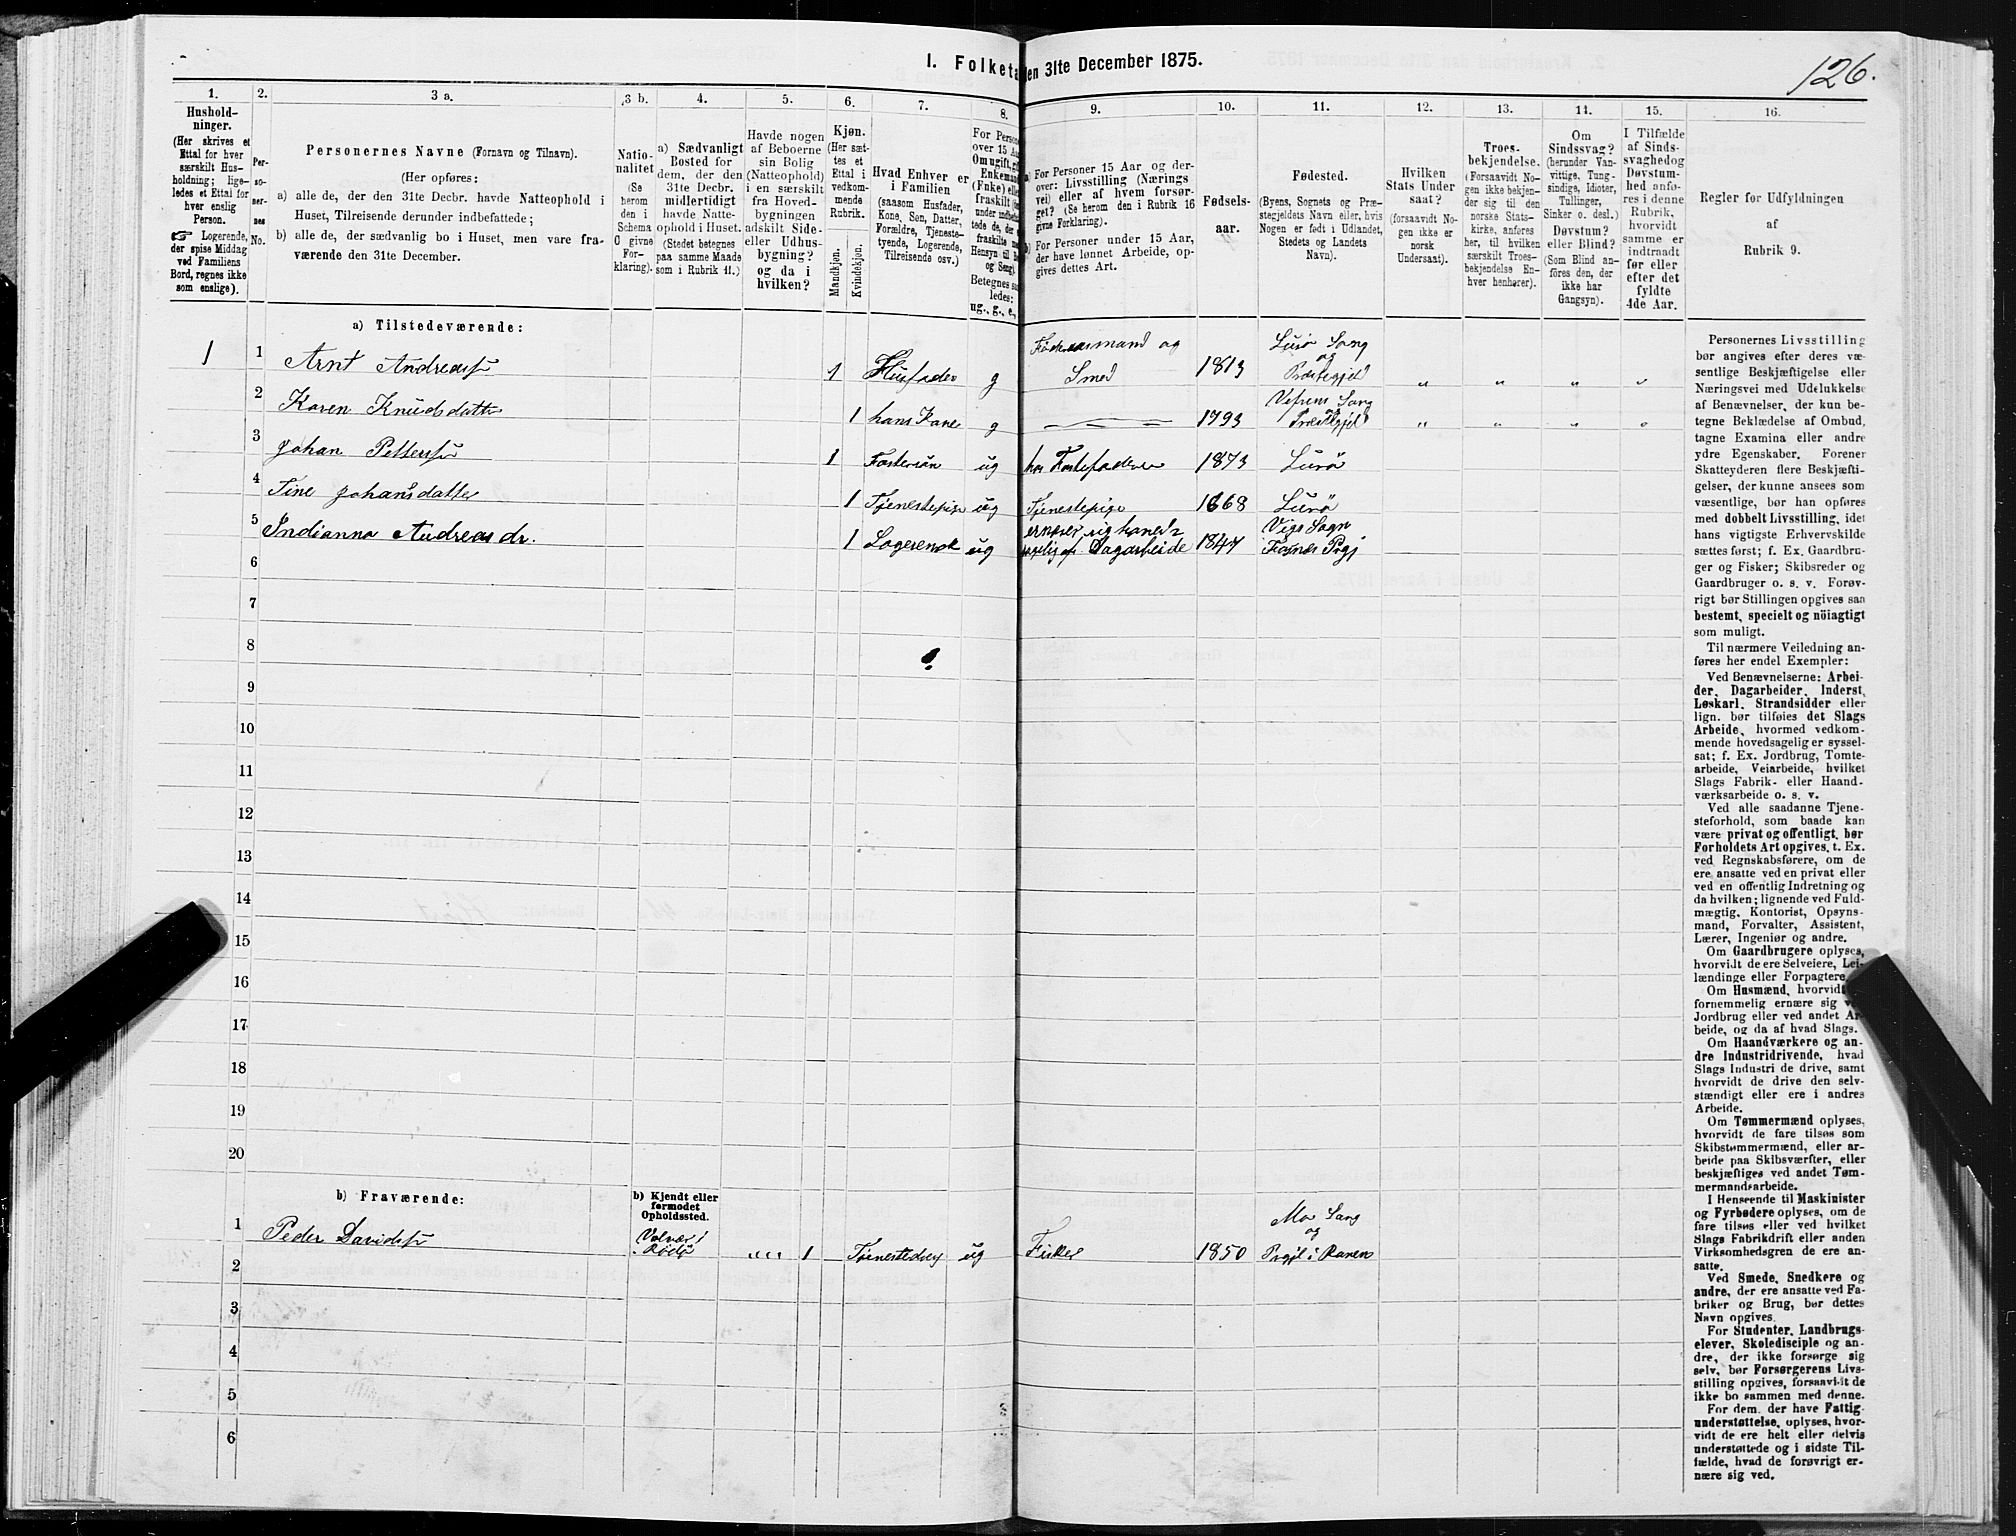 126.
1. Folketa en 31te December 1875.
1. 2. 3 a. 3 b. 4. 5. 6. 7. 8. 9. 10. 11. 12. 13. 14. 15. 16.
Hushold-
ninger.
(Her skrives et
Ettal for hver
særskilt Hus-
holdning; lige-
ledes et Ettal for
hver enslig
Person.
☞ Logerende,
der spise Middag
ved Familiens
Bord, regnes ikke
som enslige).
Per-
so-
ner-
nes
No.
Personernes Navne (Fornavn og Tilnavn).
(Her opføres:
a) alle de, der den 31te Decbr. havde Natteophold i
Huset, Tilreisende derunder indbefattede;
b) alle de, der sædvanlig bo i Huset, men vare fra-
værende den 31te December.
Natio-
nalitet
(Se
herom
den i
Schema
O givne
For-
klaring).
a) Sædvanligt
Bosted for
dem, der den
31te Decbr.
midlertidigt
havde Natte-
ophold i Huset.
(Stedet betegnes
paa samme Maade
som i Rubrik 11.)
Havde nogen
af Beboerne
sin Bolig
(Natteophold)
i en særskilt
fra Hoved-
bygningen
adskilt Side-
eller Udhus-
bygning?
og da i
hvilken?
Kjøn.
(Her sæt-
tes et
Ettal i
vedkom-
mende
Rubrik.
Mandkjøn.
Kvindekjøn.
Hvad Enhver er
i Familien
(saasom Husfader,
Kone, Søn, Datter,
Forældre, Tjeneste-
tyende, Logerende,
Tilreisende osv.)
For Person
over 15 Aa
Om ugift, gif
Enkemand
(Enke) elle
fraskilt
under indbefa
tede de, der
fraskilte
Hensyn til
og Seng).
Betegnes
ledes:
ug., g., e.,
a) For Personer 15 Aar og der-
over: Livsstilling (Nærings
vei) eller af hvem forsør-
get? (Se herom den i Rubrik 16
givne Forklaring).
b) For Personer under 15 Aar,
der have lønnet Arbeide, op-
gives dettes Art.
Fødsels-
aar.
Fødested.
(Byens, Sognets og Præ-
stegjeldets Navn eller, hvis
Nogen er født i Udlandet,
Stedets og Landets
Navn).
Hvilken
Stats Under
saat?
(forsaavidt No-
gen ikke er
norsk
Undersaat).
Troes-
bekjendelse.
(Forsaavidt No-
gen ikke bekjen-
der sig til den
norske Stats-
kirke, anføres
her, til hvilken
særskilt Troes-
bekjendelse En-
hver henhører).
Om
Sindssvag?
(herunder Van-
vittige, Tung-
sindige, Idioter,
Tullinger,
Sinker o. desl.)
Døvstum?
eller Blind?
(Som Blind an-
føres den, der
ikke har
Gangsyn).
I Tilfælde
af Sinds-
svaghedog
Døvstum-
hed anfø-
res i denne
Rubrik,
hvorvidt
samme er
indtraadt
før eller
efter det
fyldte
4de Aar.
Regler for Udfyldningen
af
Rubrik 9.
a) Tilstedeværende:
1 1 Arnt Andreass 1 Husfader g Føderaadsmand og Smed 1813 Lurø Sogn og Præstegjeld " " " "
2 Karen Knudsdatter 1 hans Kone g 1793 Vefsens Sogn og Præstegjeld " " " "
3 Johan Petters 1 Fostersøn ug hos Fosterfaderen 1873 Lurø
4 Tine Johansdatter 1 Tjenestepige ug Tjenestepige 1868 Lurø
5 Indianna Andreasdr. 1 Logerende ug ernærer sig hoved- sagelig af Dagarbeide 1847 Vigs Sogn Fosnes Prgj
6
7
8
9
10
11
12
13
14
15
16
17
18
19
20
b) Fraværende:
b) Kjendt eller
formodet
Opholdssted.
1 Peder Davids Valvær i Rödö " " 1 Tjenestedreng ug Fisker 1850 Mo Sogn og Prgjl i Ranen
2
3
4
5
6
Personernes Livsstilling
bør angives efter deres væ-
sentlige Beskjæftigelse eller
Næringsvei med Udelukkelse
af Benævnelser, der kun be-
tegne Beklædelse af Ombud,
tagne Examina eller andre
ydre Egenskaber. Forener
Skatteyderen flere Beskjæfti-
gelser, der kunne ansees som
væsentlige, bør han opføres
med dobbelt Livsstilling, idet
hans vigtigste Erhvervskilde
sættes først; f. Ex. Gaardbru-
ger og Fisker; Skibsreder og
Gaardbruger o. s. v. Forøv-
rigt bør Stillingen opgives saa
bestemt, specielt og nöiagtigt
som muligt.
Til nærmere Veiledning an-
føres her endel Exempler:
Ved Benævnelserne: Arbei-
der, Dagarbeider, Inderst,
Løskarl, Strandsidder eller
lign. bør tilføies det Slags
Arbeide, hvormed vedkom-
mende hovedsagelig er syssel-
sat; f. Ex. Jordbrug, Tomte-
arbeide, Veiarbeide, hvilket
Slags Fabrik- eller Haand-
værksarbeide o. s. v.
Ved alle saadanne Tjene-
steforhold, som baade kan
være privat og offentligt, bør
Forholdets Art opgives, t. Ex.
ved Regnskabsførere, om de
ere ansatte ved en privat eller
ved en offentlig Indretning og
da hvilken; lignende ved Fuld-
mægtig, Kontorist, Opsyns-
mand, Forvalter, Assistent,
Lærer, Ingeniør og andre.
Om Gaardbrugere oplyses,
hvorvidt de ere Selveiere, Lei-
lændinge eller Forpagtere.
Om Husmænd, hvorvidt
fornemmelig ernære sig v
Jordbrug eller ved andet Ar-
beide, og da af hvad Slags.
Om Haandværkere og an-
dre Industridrivende, hvad
Slags Industri de drive, samt
hvorvidt de drive den selv-
stændigt eller ere i andres
Arbeide.
Om Tømmermænd oplyses,
hvorvidt de fare tilsøs som
Skibstømmermænd, eller ar-
beide paa Skibsværfter, eller
beskjæftiges ved andet Tøm-
mermandsarbeide.
I Henseende til Maskinister
og Fyrbødere oplyses, om de
fare tilsøs eller ved hvilket
Slags Fabrikdrift eller anden
Virksomhedsgren de ere an-
satte.
Ved Smede, Snedkere og
andre, der ere ansatte ved Fa-
briker og Brug, bør dettes
Navn opgives.
For Studenter, Landbrugs-
elever, Skoledisciple og an-
dre, der ikke forsørge sig
selv, bør Forsørgerens Livs-
stilling opgives, forsaavidt de
ikke bo sammen med denne.
For dem, der have Fattig-
understøttelse, oplyses, hvor-
vidt de ere helt eller delvis
understøttede og i sidste Til-
fælde, hvad de forøvrigt er-
nære sig ved.